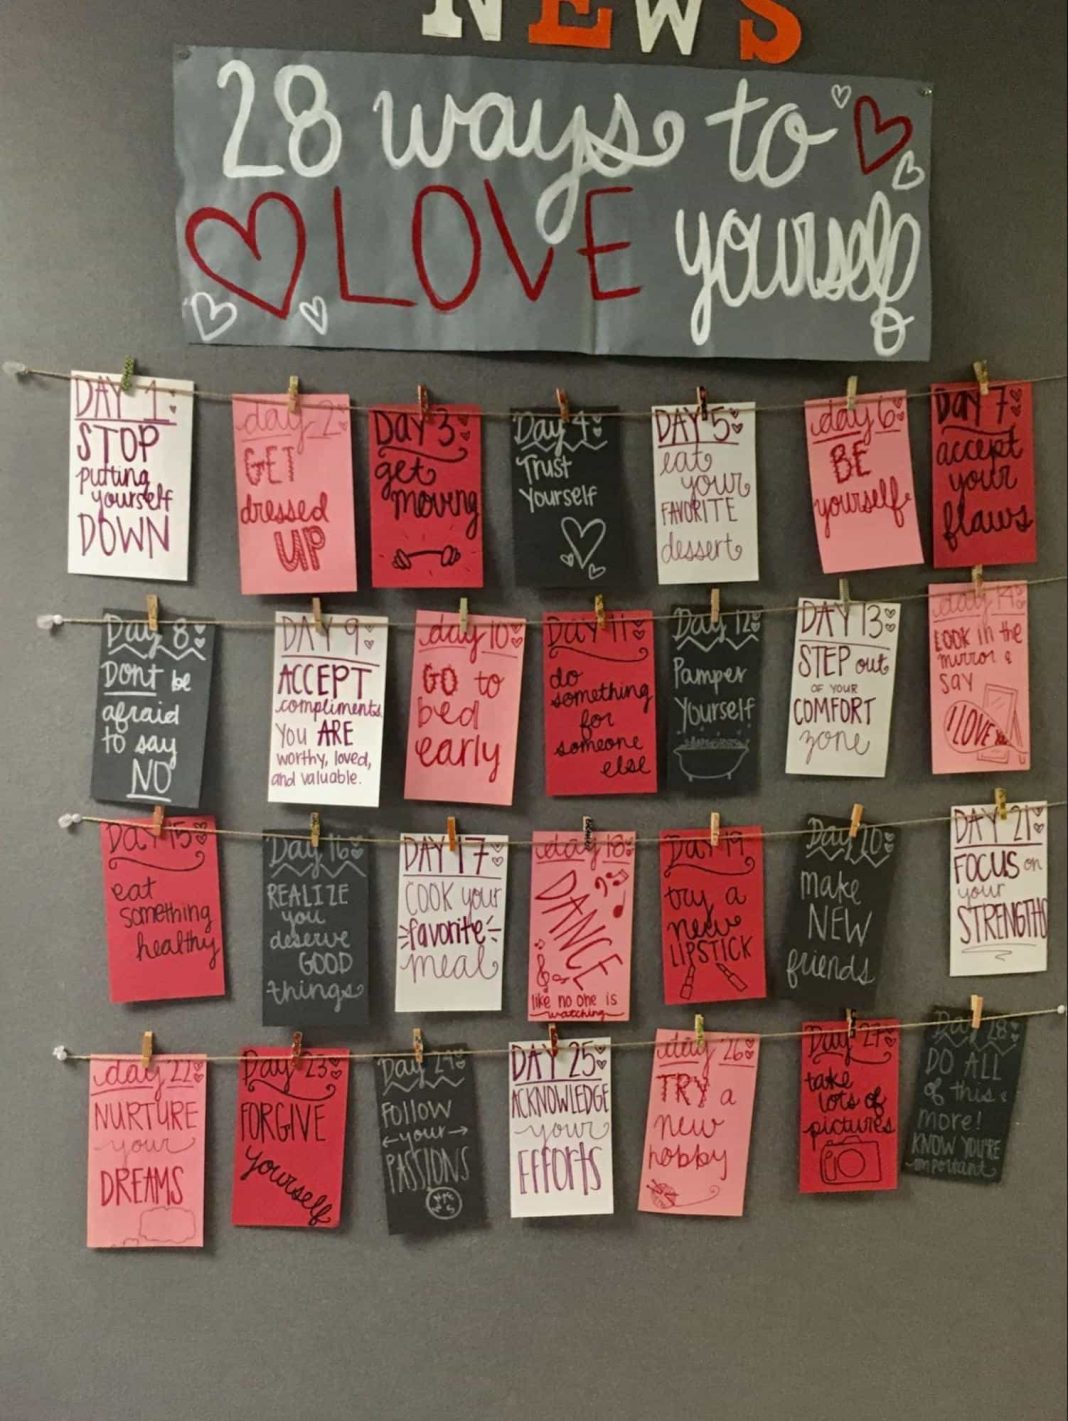 NEWS
28 ways to
LOVE yourself
DAY 1:
STOP
putting
yourself
DOWN
day 2
GET
dressed
UP
Day 3
get
moving
Day 4
Trust
Yourself
DAY 5
eat
your
FAVORITE
dessert
day 6
BE
yourself
Day 7
accept
your
flaws
Day 8
Dont be
afraid
to say
NO
DAY 9
ACCEPT
compliments
You ARE
worthy, loved,
and valuable.
day 10
GO to
bed
early
Day 11
do
something
for
someone
else
Day 12
Pamper
Yourself
DAY 13
STEP out
OF YOUR
COMFORT
zone
day 14
LOOK in the
mirror &
SAY
I LOVE
Day 15
eat
something
healthy
Day 16
REALIZE
you
deserve
GOOD
things
DAY 17
COOK your
favorite
meal
day 18
DANCE
like no one is
watching
Day 19
try a
new
LIPSTICK
Day 20
make
NEW
friends
DAY 21
FOCUS on
your
STRENGTHS
day 22
NURTURE
your
DREAMS
Day 23
FORGIVE
yourself
Day 24
FOLLOW
your
PASSIONS
DAY 25
ACKNOWLEDGE
your
EFFORTS
day 26
TRY a
new
hobby
Day 27
take
lots of
pictures
Day 28
DO ALL
of this &
more!
KNOW YOU'RE
important